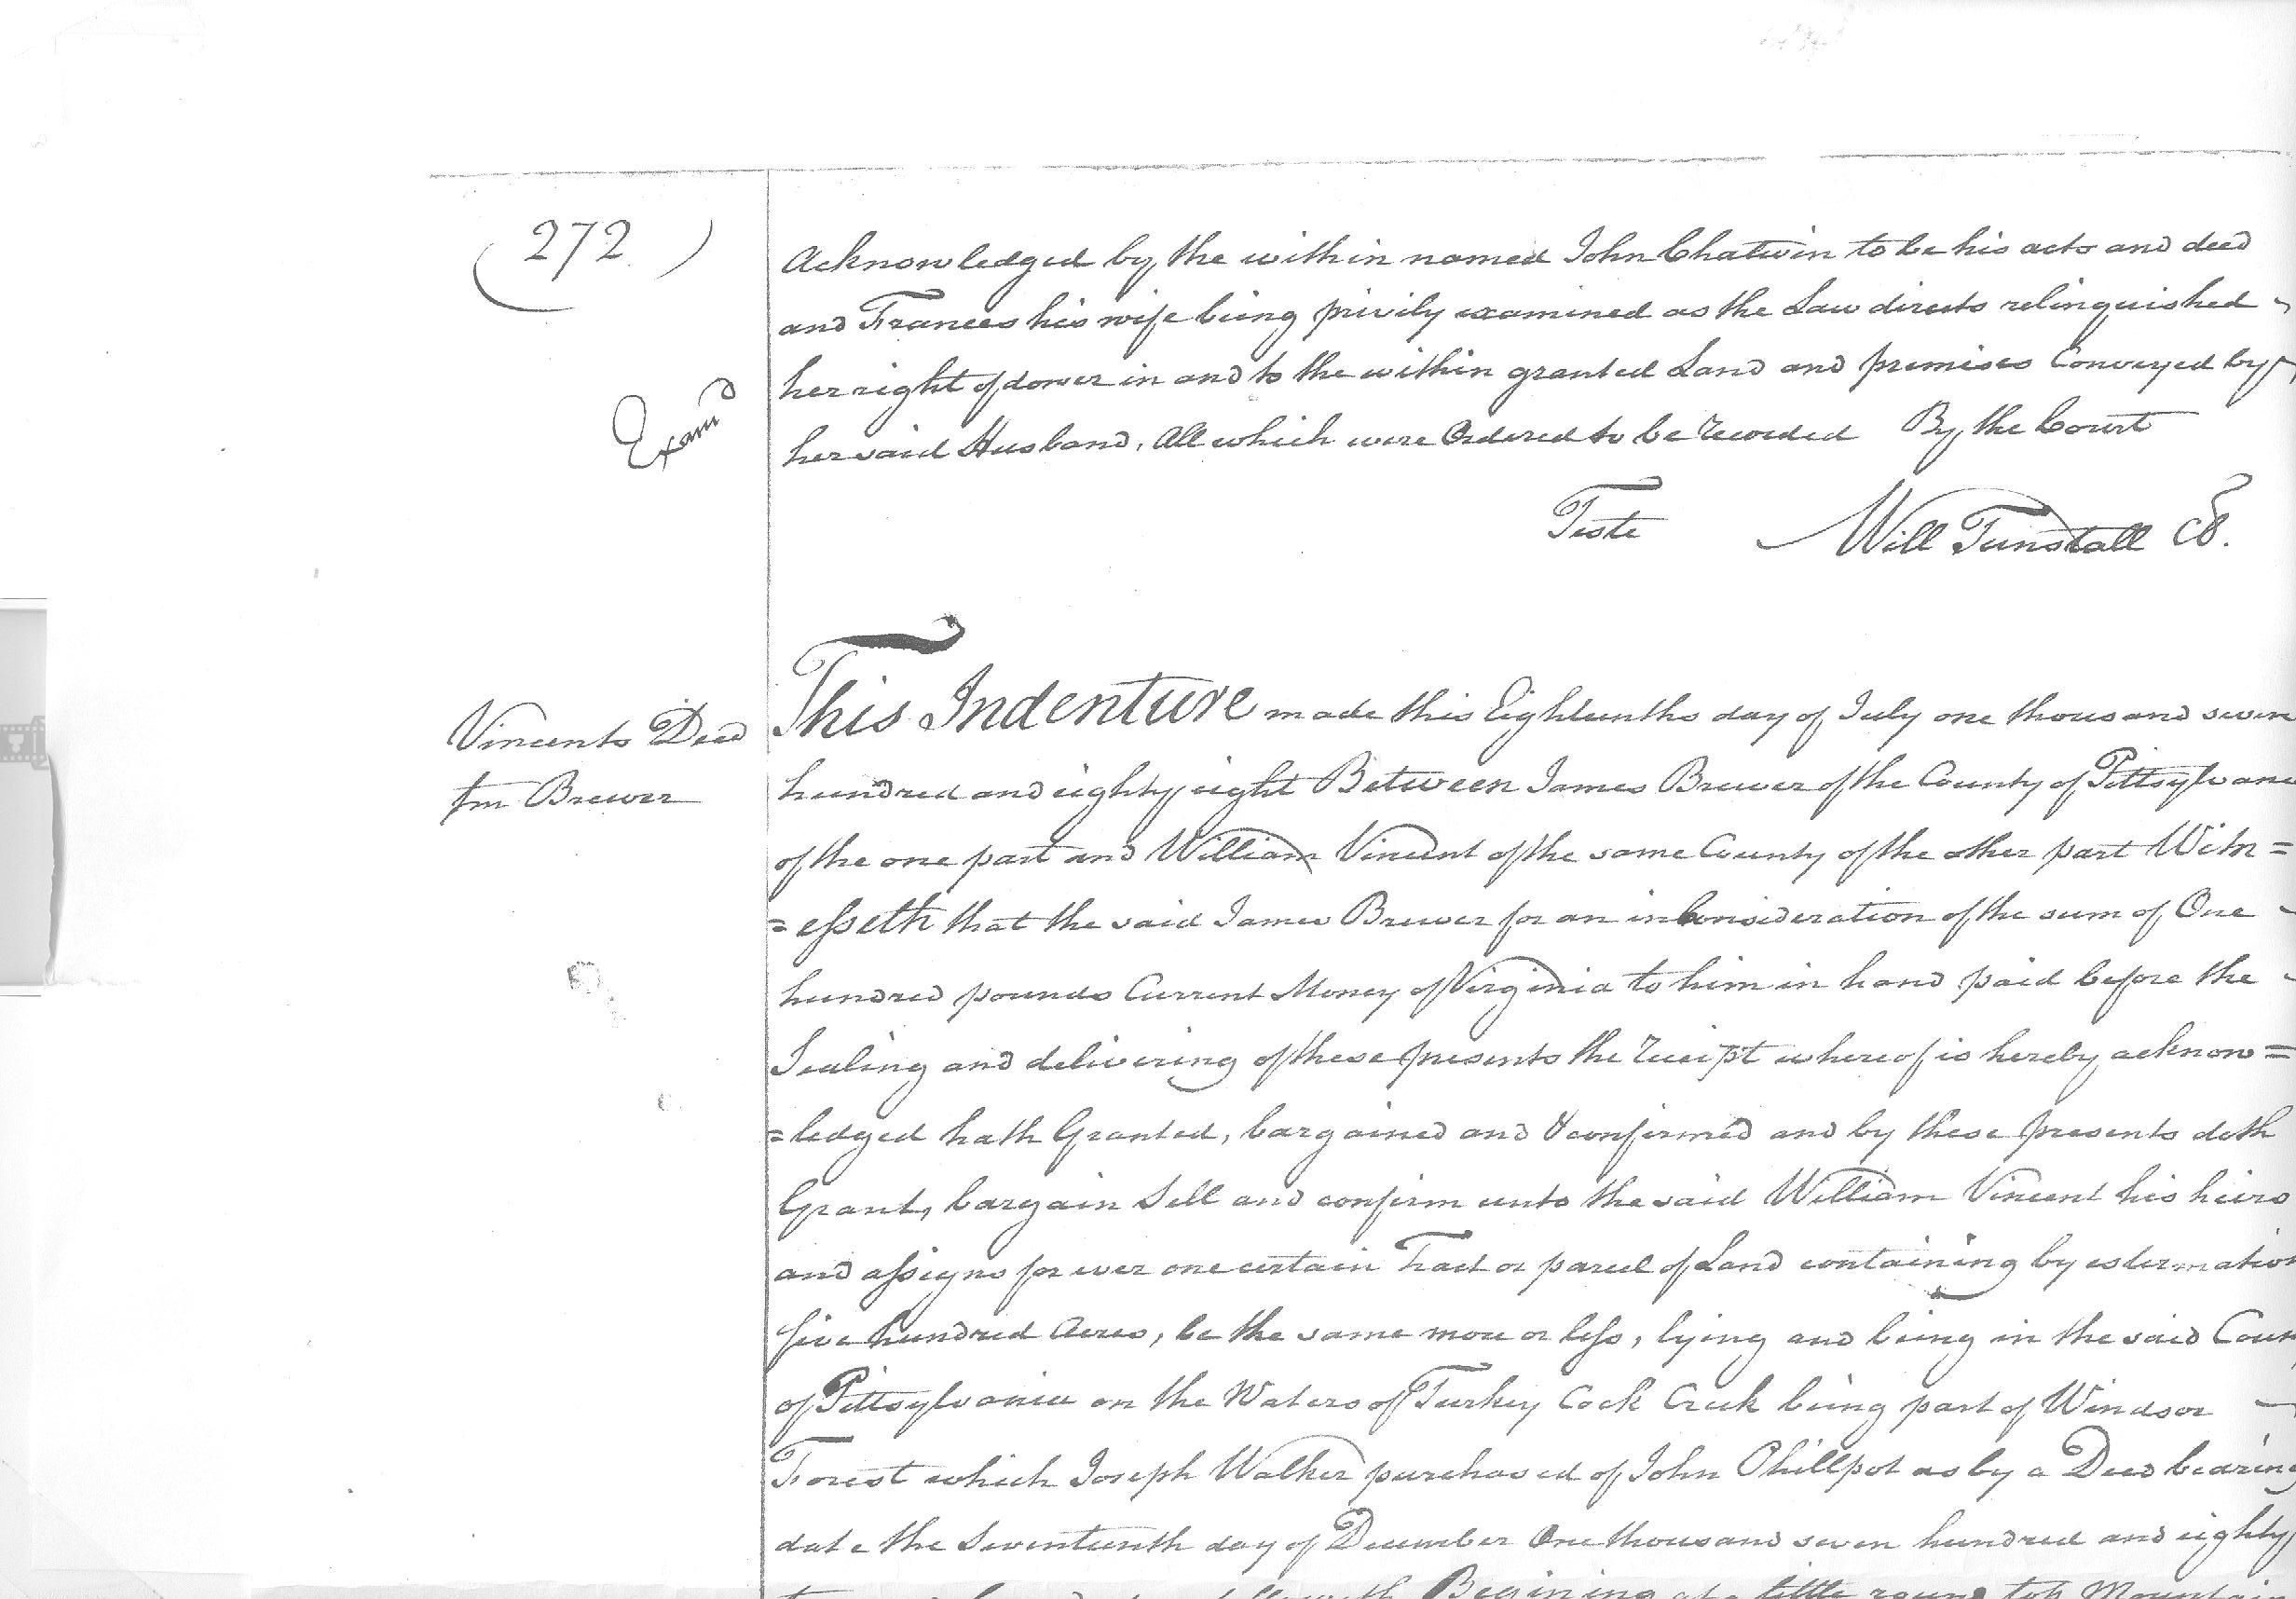 ( 272 )
Acknowledged by the within named John Chatwin to be his acts and deed
and Frances his wife being privily examined as the Law directs relinquished
her right of dower in and to the within granted Land and premises Conveyed by
Examd
her said Husband. All which were Ordered to be recorded By the Court
Teste Will Tunstall
Vincents Deed
fm Brewer
This Indenture made this Eighteenths day of July one thousand seven
hundred and eighty eight Between James Brewer of the County of Pittsylvane
of the one part and William Vincent of the same County of the other part Witn=
=esseth that the said James Brewer for an in Consideration of the sum of One
hundred pounds Current Money of Virginia to him in hand paid before the
Sealing and delivering of these presents the receipt whereof is hereby acknow=
=ledged hath Granted, bargained and & confirmed and by these presents doth
Grant, bargain Sell and confirm unto the said William Vincent his heirs
and assigns for ever one certain Tract or parcel of Land containing by estermation
five hundred Acres, be the same more or less, lying and being in the said Coun
of Pittsylvania on the Waters of Turkey Cock Creek being part of Windsor
Forest which Joseph Walker purchased of John Phillpot as by a Deed bearing
date the Seventeenth day of December One thousand seven hundred and eighty
Begining at a little round top Mountain